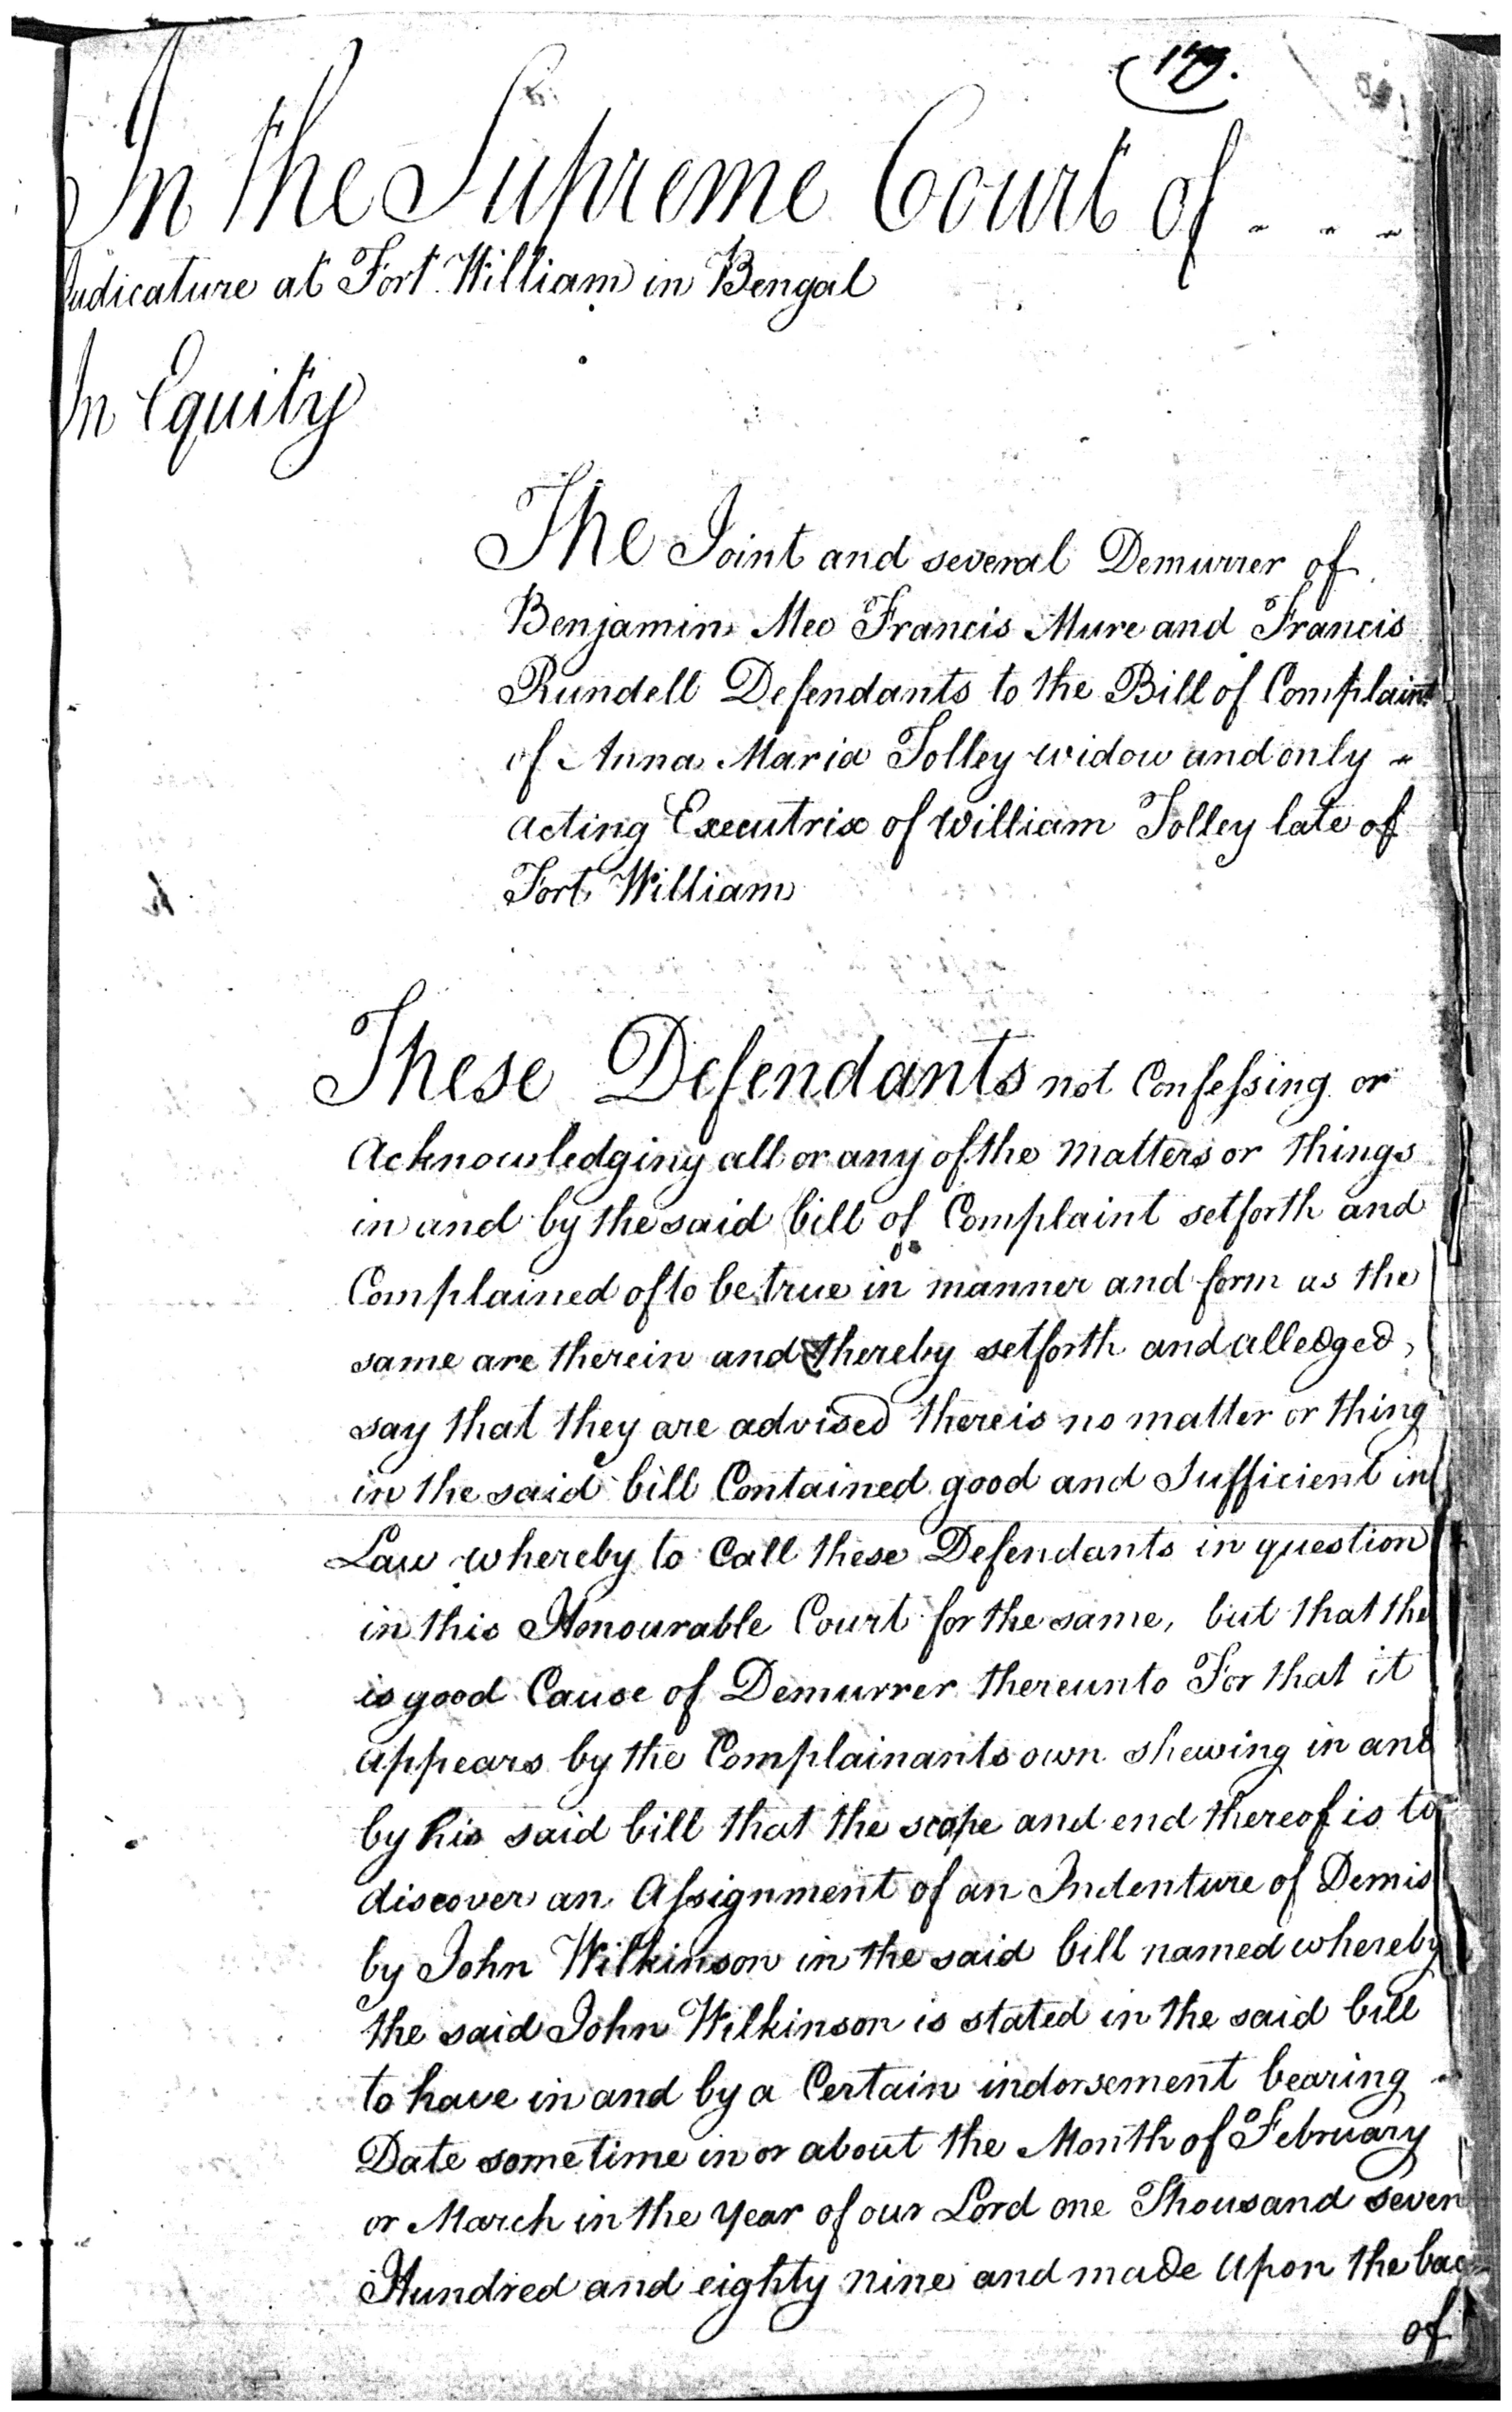 179.
In the Supreme Court of - - -
Judicature at Fort William in Bengal
In Equity
The Joint and several Demurrer of
Benjamin Mee Francis Mure and Francis
Rundell Defendants to the Bill of Complaint
of Anna Maria Tolley widow and only -
acting Executrix of William Tolley late of
Fort William
These Defendants not Confessing or
Acknowledging all or any of the matters or things
in and by the said bill of Complaint setforth and
Complained of to be true in manner and form as the
same are therein and thereby setforth and alledged,
say that they are advised there is no matter or thing
in the said bill Contained good and Sufficient in
Law whereby to Call these Defendants in question
in this Honourable Court for the same, but that the
is good Cause of Demurrer thereunto For that it
appears by the Complainants own shewing in and
by his said bill that the scope and end thereof is to
discover an Assignment of an Indenture of Demis
by John Wilkinson in the said bill named whereby
the said John Wilkinson is stated in the said bill
to have in and by a Certain indorsement bearing -
Date some time in or about the Month of February
or March in the Year of our Lord one Thousand seven
Hundred and eighty nine and made Upon the bac
of